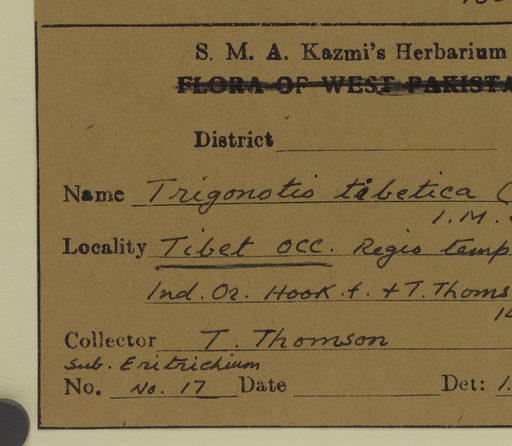 S. M. A. Kazmi's Herbarium
FLORA OF WEST PAKISTA
District
Name Trigonotis tibetica (
I. M.
Locality Tibet occ. Regio temp
Ind. Or. Hook. f. + T. Thoms
Collector T. Thomson
Sub. Eritrichium
No. No. 17 Date Det: 1.